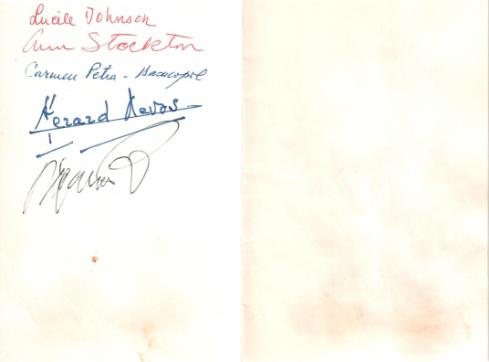 Lucile Johnson
Ann Stockton
Carmen Petra - Basacopol
Gérard Devos